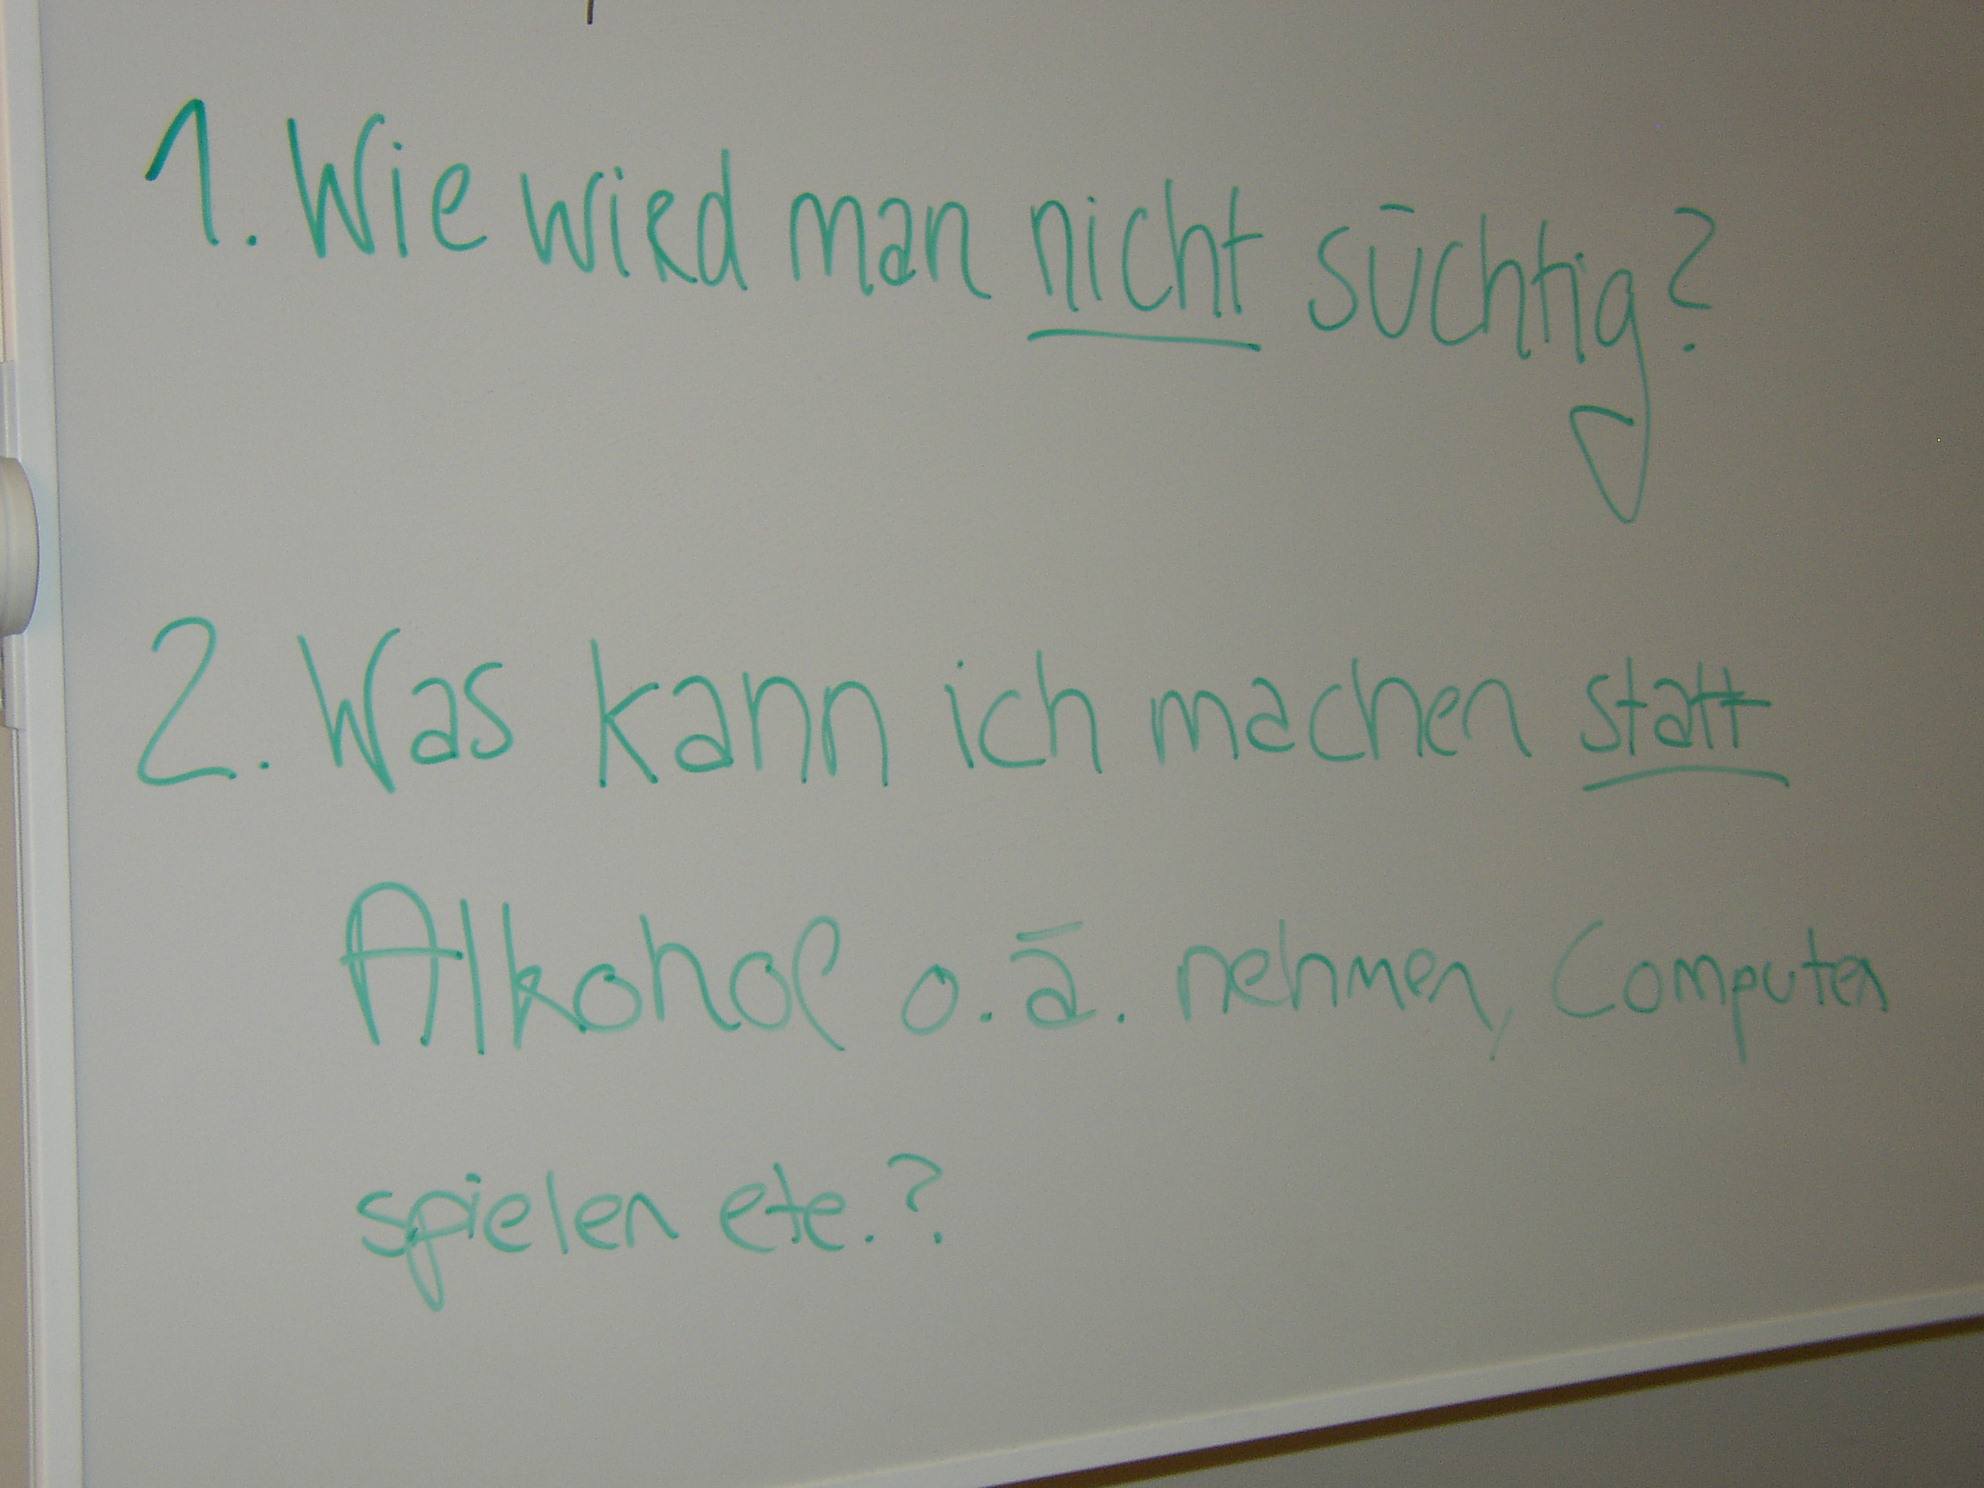 1. Wie wird man nicht süchtig?
2. Was kann ich machen statt
Alkohol o.ä. nehmen, Computer
spielen etc.?